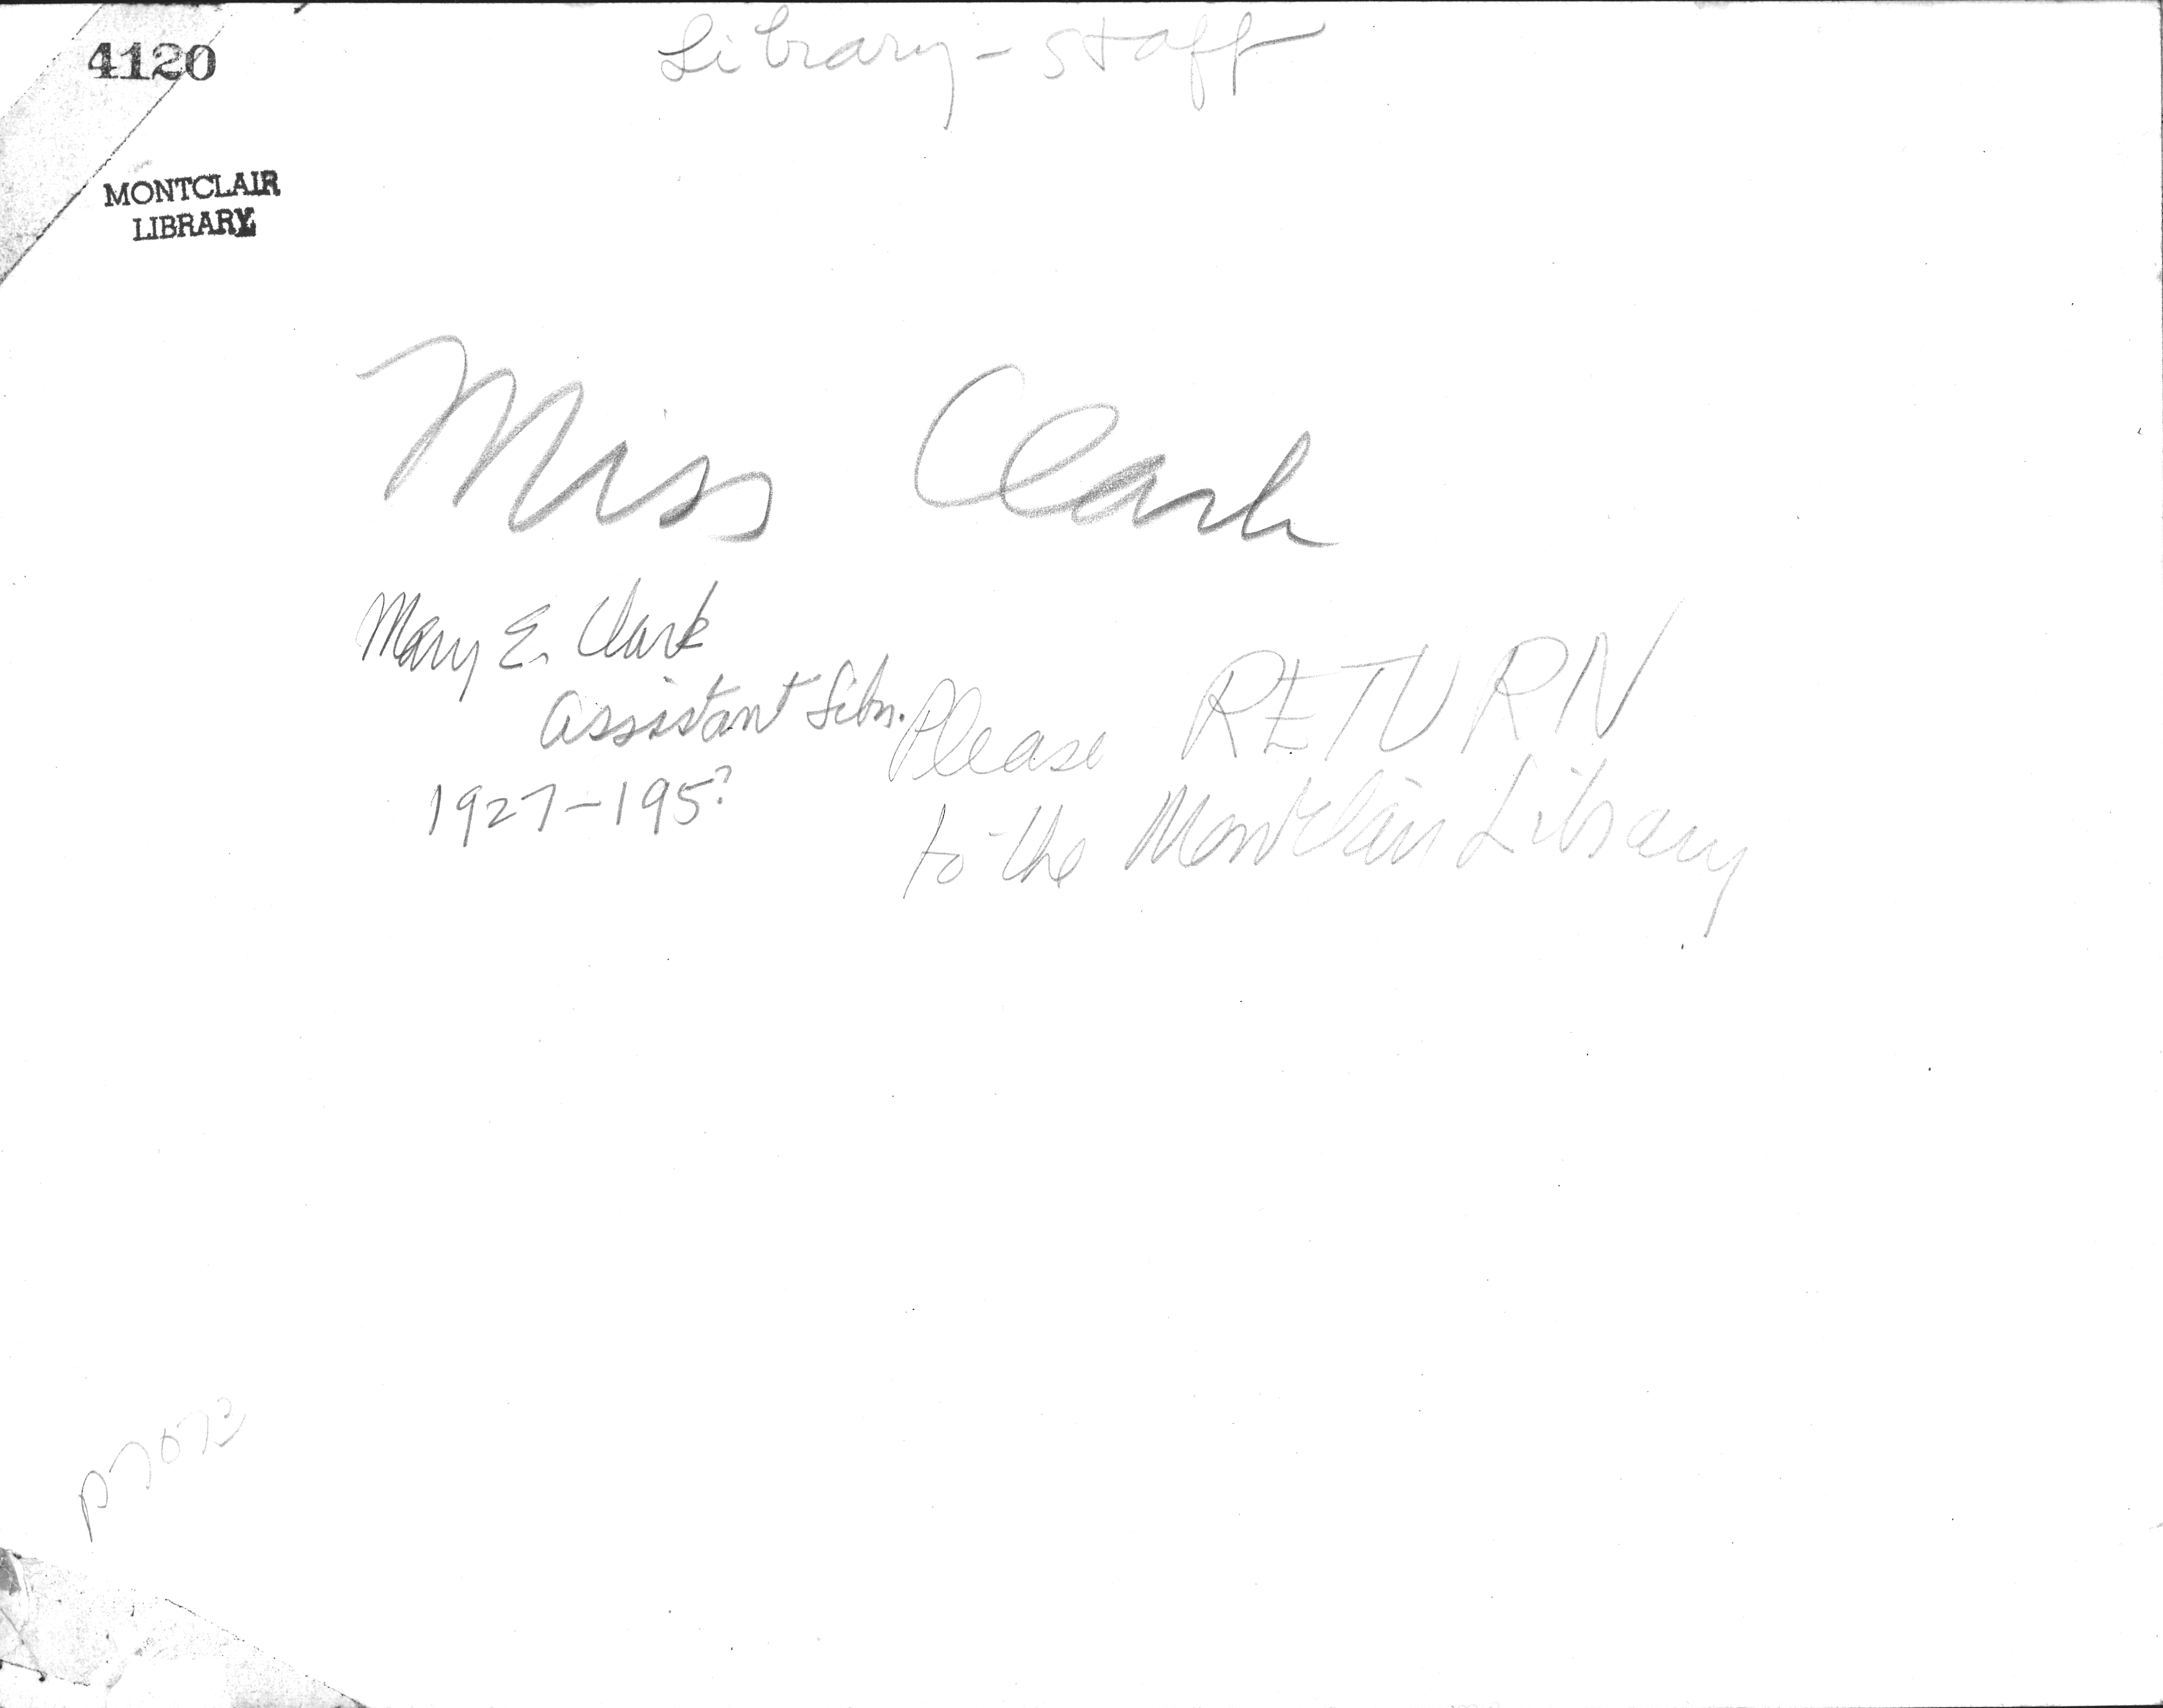 4120
Library - Staff
MONTCLAIR
LIBRARY
Miss Clark
Mary E. Clark
Assistant Libn.
1927-195?
Please RETURN
to the Montclair Library
P7073